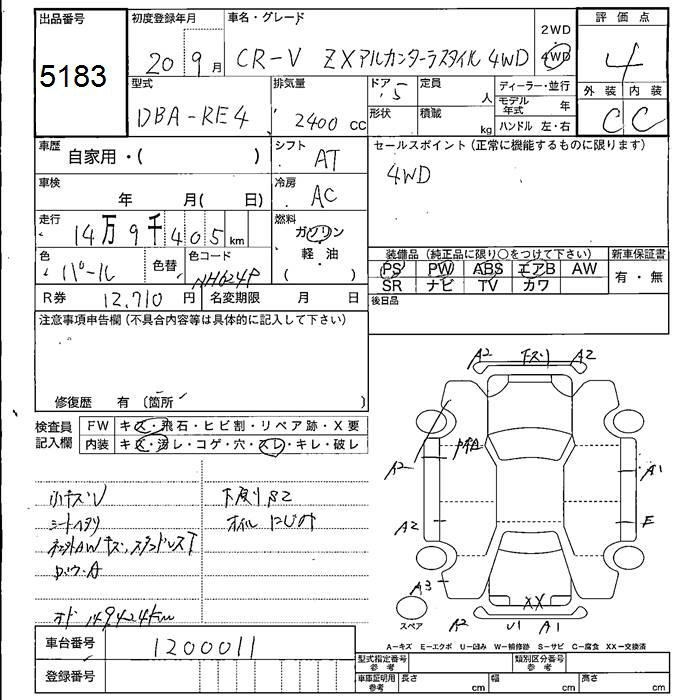 出品番号 初度登録年月 車名・グレード 2WD 評価点
5183 20 9月 CR-V ZXアルカンターラスタイル 4WD ・4WD 4
型式 排気量 ドア 定員 ディーラー・並行 外装 内装
DBA-RE4 2400cc 5 人 モデル年式 年 C C
形状 積載 kg ハンドル 左・右
車歴 自家用・( ) シフト AT セールスポイント(正常に機能するものに限ります)
車検 年 月( 日) 冷房 AC 4WD
走行 14万9千405km 燃料 ガソリン
軽・油
( )
色 パール 色替 色コード NH624P
装備品(純正品に限り○をつけて下さい) 新車保証書
PS PW ABS エアB AW 有・無
SR ナビ TV カワ
R券 12,710円 名変期限 月 日 後日品
注意事項申告欄(不具合内容等は具体的に記入して下さい)
修復歴 有(箇所 )
検査員記入欄 FW キズ・飛石・ヒビ割・リペア跡・X要
内装 キズ・汚レ・コゲ・穴・スレ・キレ・破レ
小キズU 下廻りS2
シートヘタリ オイルにじみ
オド 149424km
A2 下スリ A2
A2 A1
A2 E
A3
XX
スペア A2 U1 A1
A-キズ E-エクボ U-凹み W-補修跡 S-サビ C-腐食 XX-交換済
車台番号 1200011
登録番号
型式指定番号 参考 類別区分番号 参考
車庫証明用 参考 長さ cm 幅 cm 高さ cm